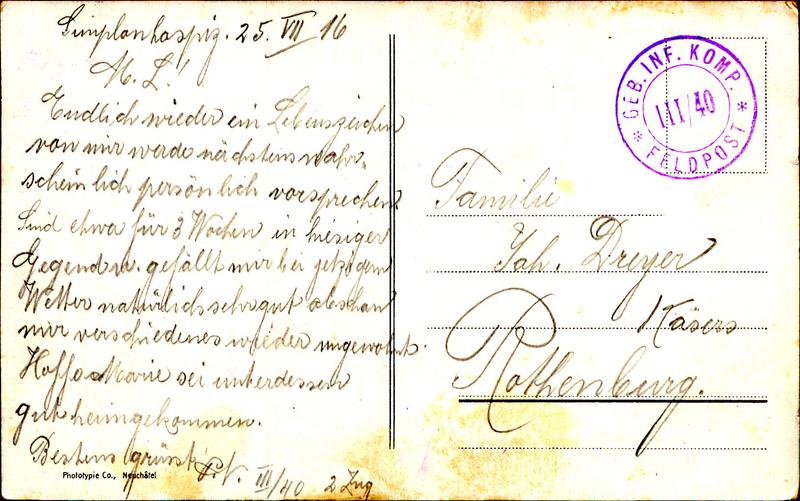 Simplonhospiz. 25. VII 16
M. L.!
Endlich wieder ein Lebenszeichen
von mir werde nächstens wahr-
scheinlich persönlich vorsprechen
Sind etwa für 3 Wochen in hiesiger
Gegend u. gefällt mir bei jetzigem
Wetter natürlich sehr gut obschon
mir verschiedenes wieder ungewohnt.
Hoffe Marie sei unterdessen
gut heimgekommen.
Bestens grüsst
III/40 2 Zug
Phototypie Co., Neuchâtel
GEB. INF. KOMP.
III/40
* FELDPOST *
Familie
Joh. Dreyer
Käsers
Rothenburg.